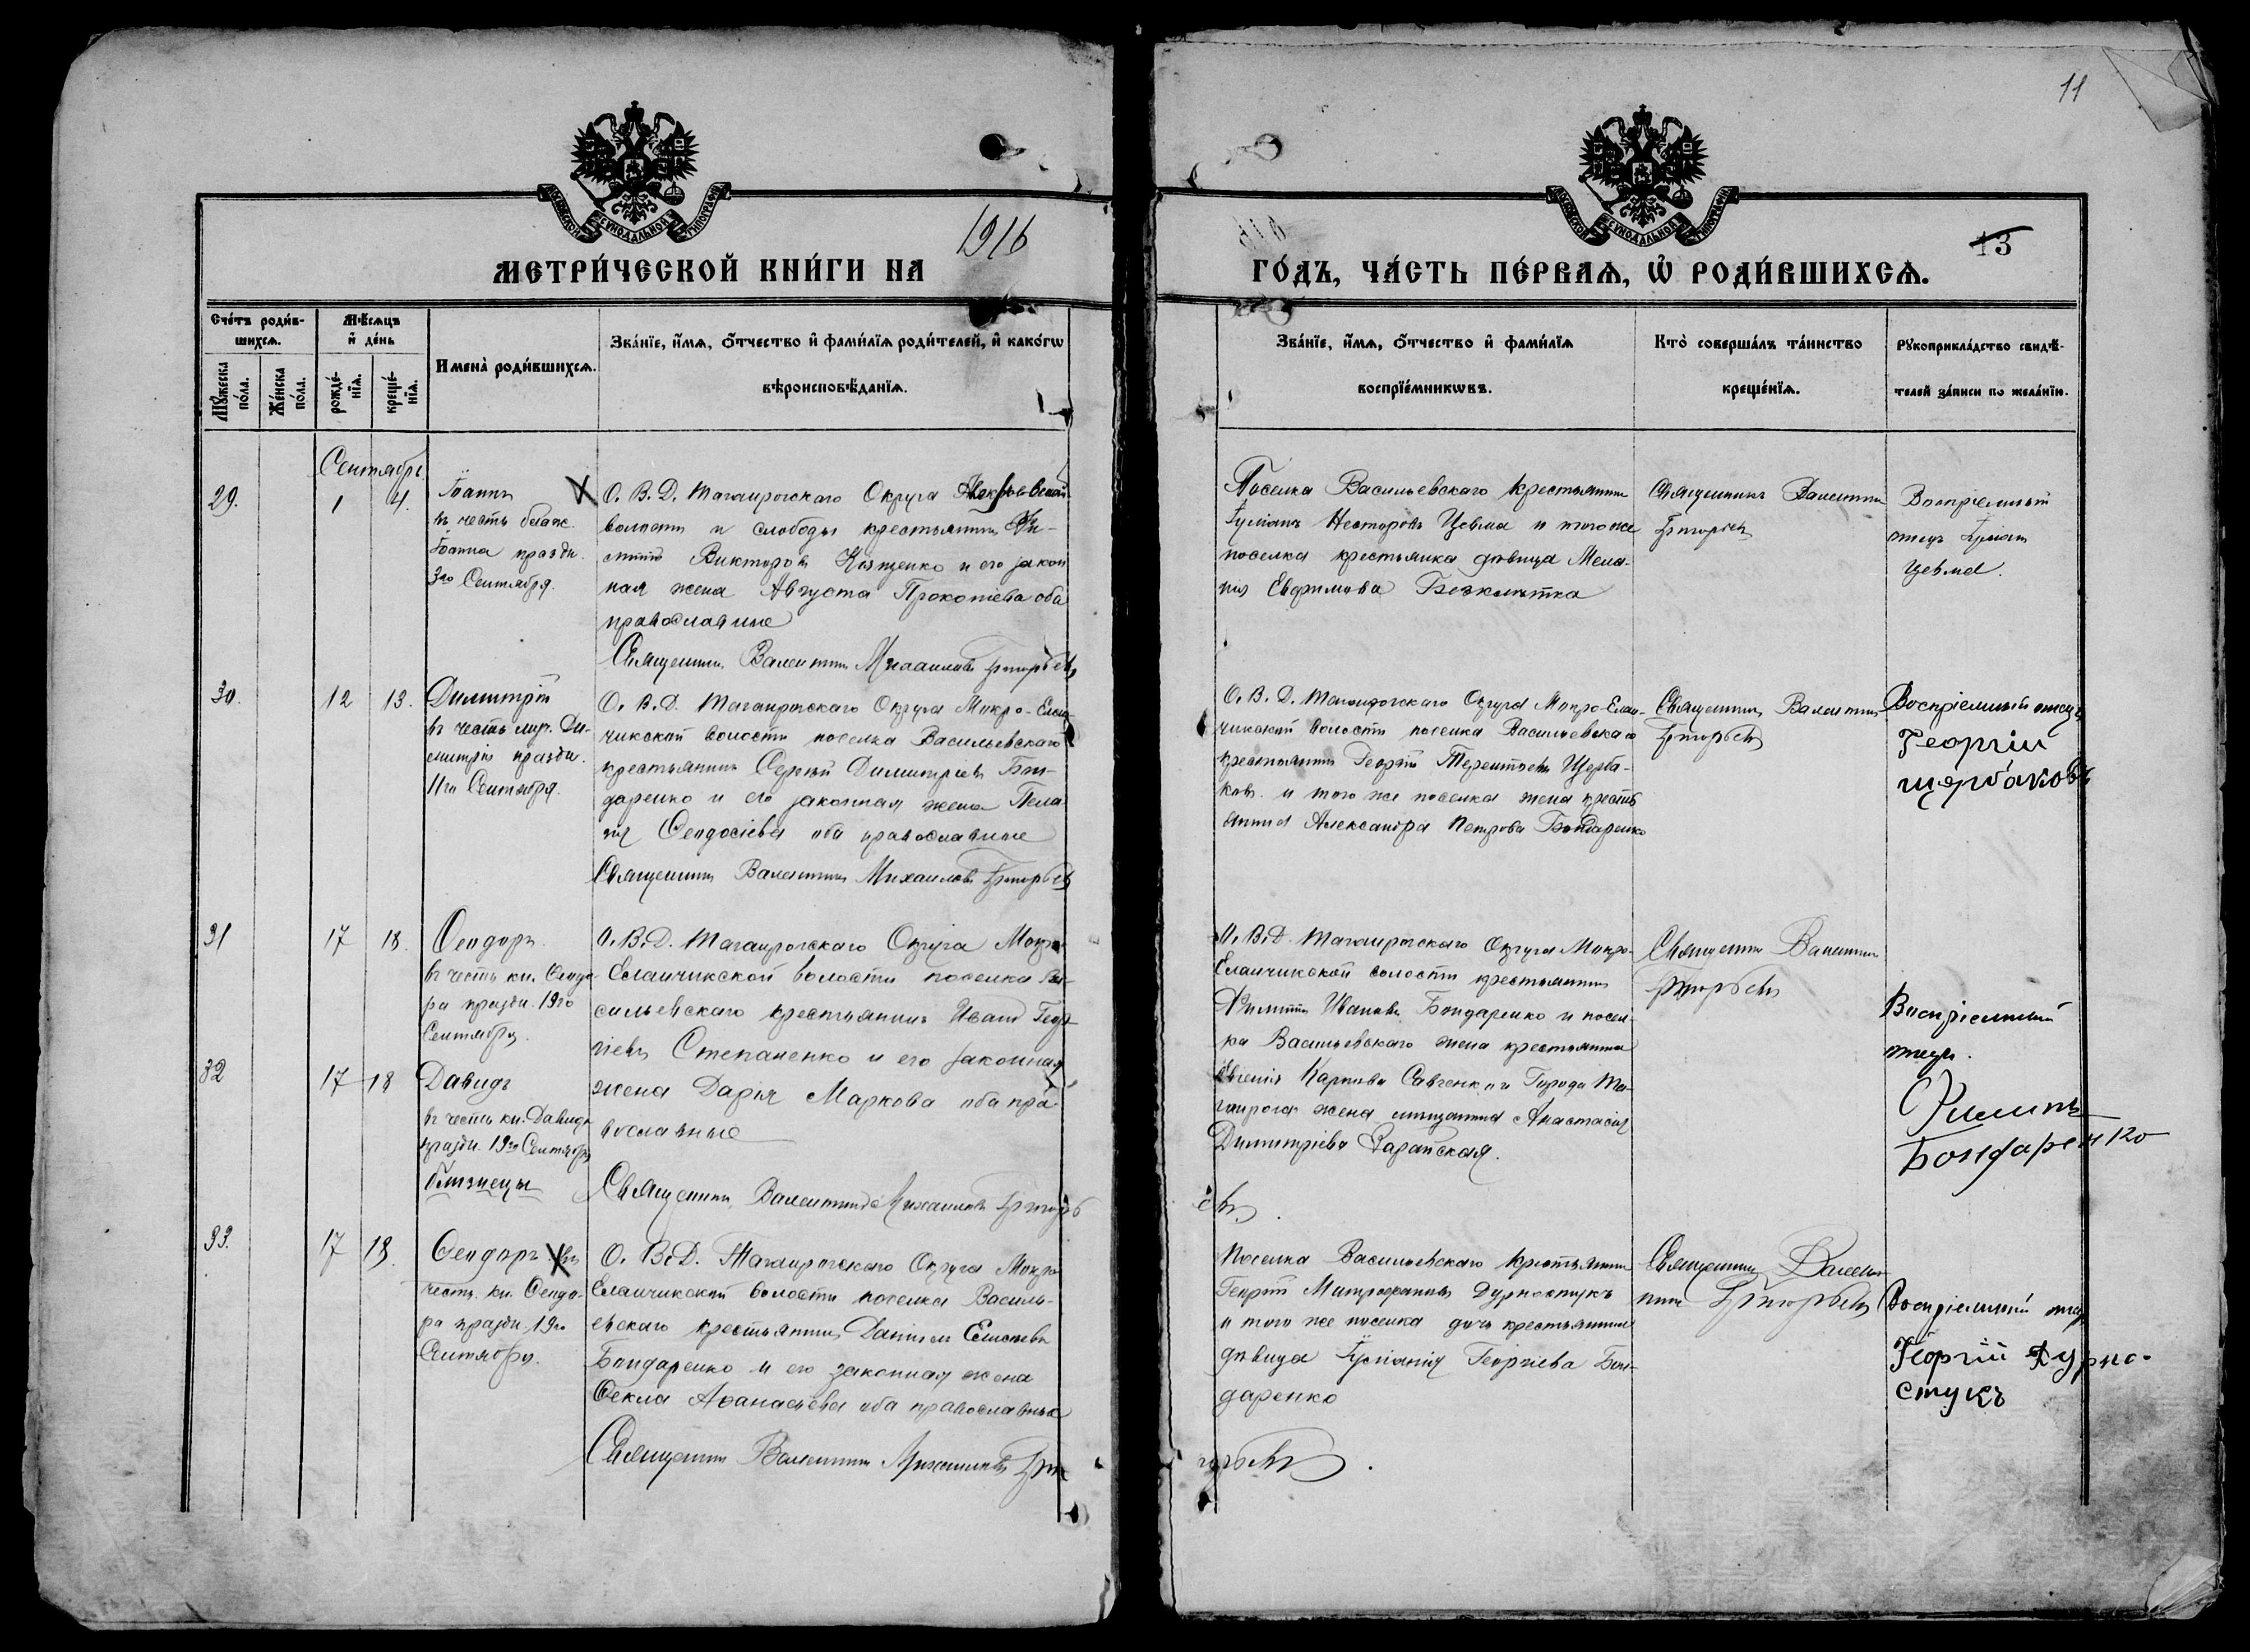 11
МОСКОВСКОЙ СУНОДАЛЬНОЙ ТИПОГРАФІИ
МОСКОВСКОЙ СУНОДАЛЬНОЙ ТИПОГРАФІИ
1916
13
МЕТРИ́ЧЕСКОЙ КНИ́ГИ НА
ГО́ДЪ, ЧА́СТЬ ПЕ́РВАѦ, Ѡ҆ РОДИ́ВШИХСѦ.
Сче́тъ роди́в-
шихсѧ.
Мѣ́сѧцъ
и҆ де́нь
Мꙋ́жеска по́ла.
Же́нска по́ла.
рожде́-
нїѧ.
креще́-
нїѧ.
Имена̀ роди́вшихсѧ.
Зва́нїе, и҆́мѧ, ѻ҆́тчество и҆ фами́лїѧ роди́телей, и҆ како́гѡ
вѣроисповѣ́данїѧ.
Зва́нїе, и҆́мѧ, ѻ҆́тчество и҆ фами́лїѧ
воспрїе́мникѡвъ.
Кто̀ соверша́лъ та́инство
креще́нїѧ.
Рꙋкоприкла́дство свидѣ́-
телей за́писи по жела́нїю.
Сентябрь
29.
1
4.
Іоаннъ
въ честь
Іоанна праздн.
3го Сентября.
О. В. Д. Таганрогскаго Округа
волости и слободы крестьянинъ
Викторовъ и его закон
ная жена Августа Прокопіева оба
православные
Священникъ Валентинъ Михаиловъ Григорьевъ
Поселка Васильевскаго крестьянинъ
Іуліанъ Несторовъ Цевма и того же
поселка крестьянка дѣвица Мела-
нія Евфимова
Священникъ Валентинъ
Григорьевъ
Воспріемный
отецъ Іуліанъ
Цевма.
30.
12
13.
Димитрій
въ честь муч. Ди-
митрія праздн.
11го Сентября.
О. В. Д. Таганрогскаго Округа Мокро-Елан-
чикской волости поселка Васильевскаго
крестьянинъ Сергѣй Димитріевъ Бон-
даренко и его законная жена Пела-
гія Ѳеодосіева оба православные
Священникъ Валентинъ Михаиловъ Григорьевъ
О. В. Д. Таганрогскаго Округа Мокро-Елан-
чикской волости поселка Васильевскаго
крестьянинъ Георгій Терентьевъ Щерба-
ковъ и того же поселка жена кресть
янина Александра Петрова Бондаренко
Священникъ Валентинъ
Григорьевъ
Воспріемный отецъ
Георгій
щербаковъ
31
17
18.
Ѳеодоръ.
въ честь кн. Ѳеодо-
ра праздн. 19го
Сентября.
О. В. Д. Таганрогскаго Округа Мокро
Еланчикской волости поселка Ва-
сильевскаго крестьянинъ Иванъ Геор-
гіевъ Степаненко и его законная
жена Дарія Маркова оба пра-
вославные
32
17
18
Давидъ
въ честь кн. Давида
праздн. 19го Сентября
близнецы
Священникъ Валентинъ Михаиловъ Григорь
евъ.
О. В. Д. Таганрогскаго Округа Мокро-
Еланчикской волости крестьянинъ
Филиппъ Ивановъ Бондаренко и посел-
ка Васильевскаго жена крестьянина
Евгенія Карпова Савченко и Города Та-
ганрога жена мѣщанина Анастасія
Димитріева Зарайская.
Священникъ Валентинъ
Григорьевъ
Воспріемный
отецъ.
Филипъ
Бондаренко
33.
17
18.
Ѳеодоръ въ
честь кн. Ѳеодо-
ра праздн. 19го
Сентября.
О. В. Д. Таганрогскаго Округа Мокро
Еланчикской волости поселка Василь-
евскаго крестьянинъ Даніилъ Елисеевъ
Бондаренко и его законная жена
Ѳекла Аѳанасіева оба православные
Священникъ Валентинъ Михаиловъ Григ
орьевъ.
Поселка Васильевскаго крестьянинъ
Георгій Митрофановъ Дурностукъ
и того же поселка дочь крестьянина
дѣвица Іуліанія Георгіева Бон-
даренко
Священникъ Вален
тинъ Григорьевъ
Воспріемный отецъ
Георгій Дурно-
стукъ